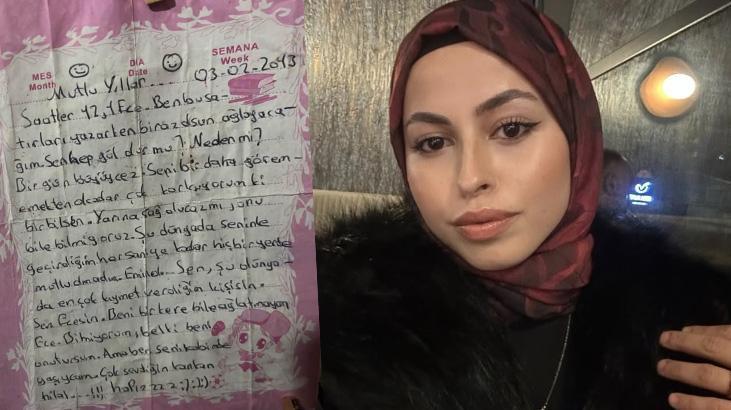 SEMANA
Week
MES
Month
DIA
Date
03-02-2013
Mutlu Yıllar...
Saatler 12,1 Ece. Ben bu sa-
tırları yazarken biraz olsun ağlayaca-
ğım. Sen hep gül dur mu? Neden mi?
Bir gün büyüycez. Seni bir daha görem-
emekten okadar çok korkuyorum ki
bir bilsen. Yarına çağ alucazmı şunu
bile bilmiyoruz. Şu dünyada seninle
geçirdiğim her saniye kadar hiçbir yerde
mutlu olmadım. Eminde... Sen, şu dünya-
da en çok kıymet verdiğim kişisin.
Sen Ecesin. Beni bir kere bile ağlatmayan
Ece. Bilmiyorum, belli beni
unutursun. Ama ben seni kalbimde
yaşıycam. Çok sevdiğin kankan
hilal....!!!